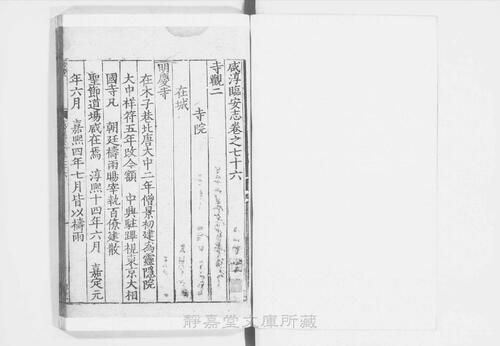 咸淳臨安志卷之七十六
寺觀二
寺院
在城
明慶寺
在木子巷北唐大中二年僧景初建為靈隱院
大中祥符五年改今額 中興駐蹕視東京大相
國寺凡 朝廷禱雨暘宰執百僚建散
聖節道場咸在焉 淳熙十四年六月 嘉定元
年六月 嘉熙四年七月皆以禱雨
靜嘉堂文庫所藏